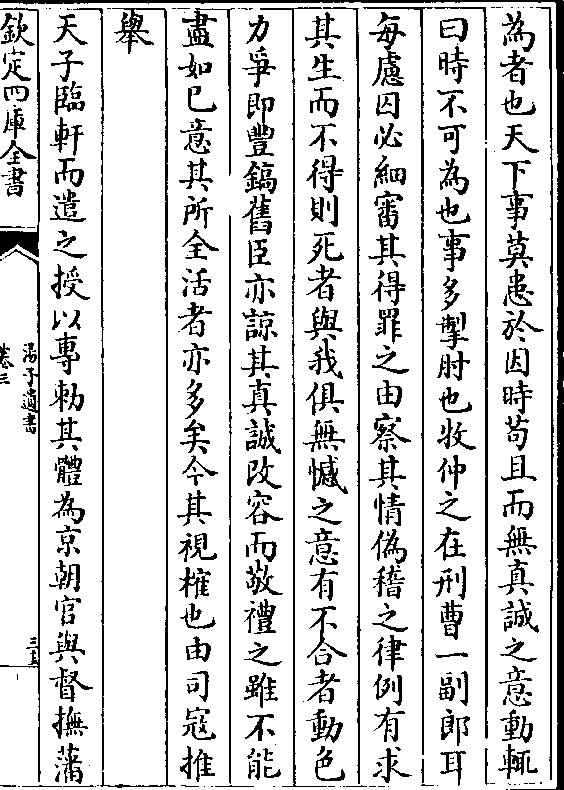 為者也天下事莫患於因時苟且而無真誠之意動輒
曰時不可為也事多掣肘也牧仲之在刑曹一副郎耳
每慮囚必細審其得罪之由察其情偽稽之律例有求
其生而不得則死者與我俱無憾之意有不合者動色
力爭即豐鎬舊臣亦諒其真誠改容而敬禮之雖不能
盡如己意其所全活者亦多矣今其視榷也由司寇推
舉
天子臨軒而遣之授以專勅其體為京朝官與督撫藩
欽定四庫全書
湯子遺書
卷三
三五